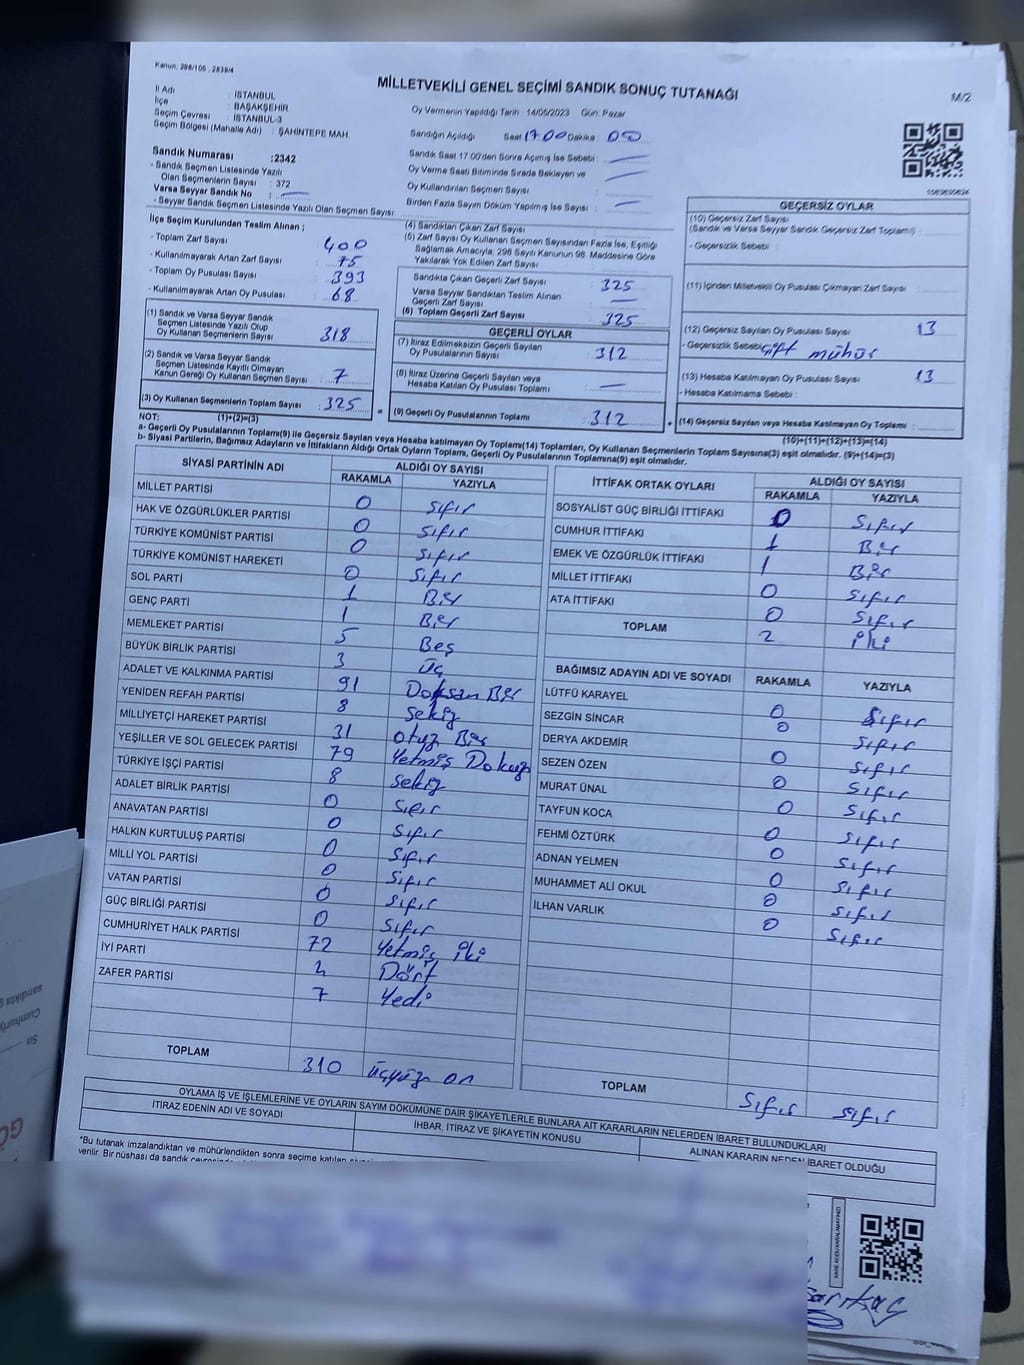 Kanun: 298/105 , 2839/4
MİLLETVEKİLİ GENEL SEÇİMİ SANDIK SONUÇ TUTANAĞI
M/2
İl Adı : İSTANBUL
İlçe : BAŞAKŞEHİR
Seçim Çevresi : İSTANBUL-3
Seçim Bölgesi (Mahalle Adı) : ŞAHİNTEPE MAH.
Oy Vermenin Yapıldığı Tarih : 14/05/2023 Gün: Pazar
Sandığın Açıldığı Saat 17.00 Dakika : 00
Sandık Saat 17.00'den Sonra Açımış İse Sebebi : —
Oy Verme Saati Bitiminde Sırada Bekleyen ve
Oy Kullandırılan Seçmen Sayısı : —
Birden Fazla Sayım Döküm Yapılmış İse Sayısı : —
Sandık Numarası :2342
- Sandık Seçmen Listesinde Yazılı
Olan Seçmenlerin Sayısı : 372
Varsa Seyyar Sandık No : —
- Seyyar Sandık Seçmen Listesinde Yazılı Olan Seçmen Sayısı:
İlçe Seçim Kurulundan Teslim Alınan ;
- Toplam Zarf Sayısı : 400
- Kullanılmayarak Artan Zarf Sayısı : 75
- Toplam Oy Pusulası Sayısı : 393
- Kullanılmayarak Artan Oy Pusulası : 68
(1) Sandık ve Varsa Seyyar Sandık
Seçmen Listesinde Yazılı Olup
Oy Kullanan Seçmenlerin Sayısı : 318
(2) Sandık ve Varsa Seyyar Sandık
Seçmen Listesinde Kayıtlı Olmayan
Kanun Gereği Oy Kullanan Seçmen Sayısı : 7
(3) Oy Kullanan Seçmenlerin Toplam Sayısı : 325
(4) Sandıktan Çıkan Zarf Sayısı
(5) Zarf Sayısı Oy Kullanan Seçmen Sayısından Fazla İse, Eşitliği
Sağlamak Amacıyla, 298 Sayılı Kanunun 98. Maddesine Göre
Yakılarak Yok Edilen Zarf Sayısı :
Sandıkta Çıkan Geçerli Zarf Sayısı : 325
Varsa Seyyar Sandıktan Teslim Alınan
Geçerli Zarf Sayısı : —
(6) Toplam Geçerli Zarf Sayısı : 325
GEÇERLİ OYLAR
(7) İtiraz Edilmeksizin Geçerli Sayılan
Oy Pusulalarının Sayısı : 312
(8) İtiraz Üzerine Geçerli Sayılan veya
Hesaba Katılan Oy Pusulası Toplamı : —
= (9) Geçerli Oy Pusulalarının Toplamı : 312 +
GEÇERSİZ OYLAR
(10) Geçersiz Zarf Sayısı
(Sandık ve Varsa Seyyar Sandık Geçersiz Zarf Toplamı) :
- Geçersizlik Sebebi :
(11) İçinden Milletvekili Oy Pusulası Çıkmayan Zarf Sayısı :
(12) Geçersiz Sayılan Oy Pusulası Sayısı : 13
- Geçersizlik Sebebi : çift mühür
(13) Hesaba Katılmayan Oy Pusulası Sayısı : 13
- Hesaba Katılmama Sebebi :
(14) Geçersiz Sayılan veya Hesaba Katılmayan Oy Toplamı :
NOT: (1)+(2)=(3)
(10)+(11)+(12)+(13)=(14)
a- Geçerli Oy Pusulalarının Toplamı(9) ile Geçersiz Sayılan veya Hesaba katılmayan Oy Toplamı(14) Toplamları, Oy Kullanan Seçmenlerin Toplam Sayısına(3) eşit olmalıdır. (9)+(14)=(3)
b- Siyasi Partilerin, Bağımsız Adayların ve İttifakların Aldığı Ortak Oyların Toplamı, Geçerli Oy Pusulalarının Toplamına(9) eşit olmalıdır.
SİYASİ PARTİNİN ADI ALDIĞI OY SAYISI
RAKAMLA YAZIYLA
MİLLET PARTİSİ 0 Sıfır
HAK VE ÖZGÜRLÜKLER PARTİSİ 0 Sıfır
TÜRKİYE KOMÜNİST PARTİSİ 0 Sıfır
TÜRKİYE KOMÜNİST HAREKETİ 0 Sıfır
SOL PARTİ 1 Bir
GENÇ PARTİ 1 Bir
MEMLEKET PARTİSİ 5 Beş
BÜYÜK BİRLİK PARTİSİ 3 Üç
ADALET VE KALKINMA PARTİSİ 91 Doksan Bir
YENİDEN REFAH PARTİSİ 8 Sekiz
MİLLİYETÇİ HAREKET PARTİSİ 31 otuz Bir
YEŞİLLER VE SOL GELECEK PARTİSİ 79 Yetmiş Dokuz
TÜRKİYE İŞÇİ PARTİSİ 8 Sekiz
ADALET BİRLİK PARTİSİ 0 Sıfır
ANAVATAN PARTİSİ 0 Sıfır
HALKIN KURTULUŞ PARTİSİ 0 Sıfır
MİLLİ YOL PARTİSİ 0 Sıfır
VATAN PARTİSİ 0 Sıfır
GÜÇ BİRLİĞİ PARTİSİ 0 Sıfır
CUMHURİYET HALK PARTİSİ 72 Yetmiş iki
İYİ PARTİ 4 Dört
ZAFER PARTİSİ 7 Yedi
TOPLAM 310 üçyüz on
İTTİFAK ORTAK OYLARI ALDIĞI OY SAYISI
RAKAMLA YAZIYLA
SOSYALİST GÜÇ BİRLİĞİ İTTİFAKI 0 Sıfır
CUMHUR İTTİFAKI 1 Bir
EMEK VE ÖZGÜRLÜK İTTİFAKI 1 Bir
MİLLET İTTİFAKI 0 Sıfır
ATA İTTİFAKI 0 Sıfır
TOPLAM 2 iki
BAĞIMSIZ ADAYIN ADI VE SOYADI RAKAMLA YAZIYLA
LÜTFÜ KARAYEL 0 Sıfır
SEZGİN SİNCAR 0 Sıfır
DERYA AKDEMİR 0 Sıfır
SEZEN ÖZEN 0 Sıfır
MURAT ÜNAL 0 Sıfır
TAYFUN KOCA 0 Sıfır
FEHMİ ÖZTÜRK 0 Sıfır
ADNAN YELMEN 0 Sıfır
MUHAMMET ALİ OKUL 0 Sıfır
İLHAN VARLIK 0 Sıfır
TOPLAM Sıfır Sıfır
OYLAMA İŞ VE İŞLEMLERİNE VE OYLARIN SAYIM DÖKÜMÜNE DAİR ŞİKAYETLERLE BUNLARA AİT KARARLARIN NELERDEN İBARET BULUNDUKLARI
İTİRAZ EDENİN ADI VE SOYADI
İHBAR, İTİRAZ VE ŞİKAYETİN KONUSU
ALINAN KARARIN NEDEN İBARET OLDUĞU
"Bu tutanak imzalandıktan ve mühürlendikten sonra seçime katılan
verilir. Bir nüshası da sandık
KARE KODU KARALAMAYINIZ!
sandıkta
Cumhuriyet